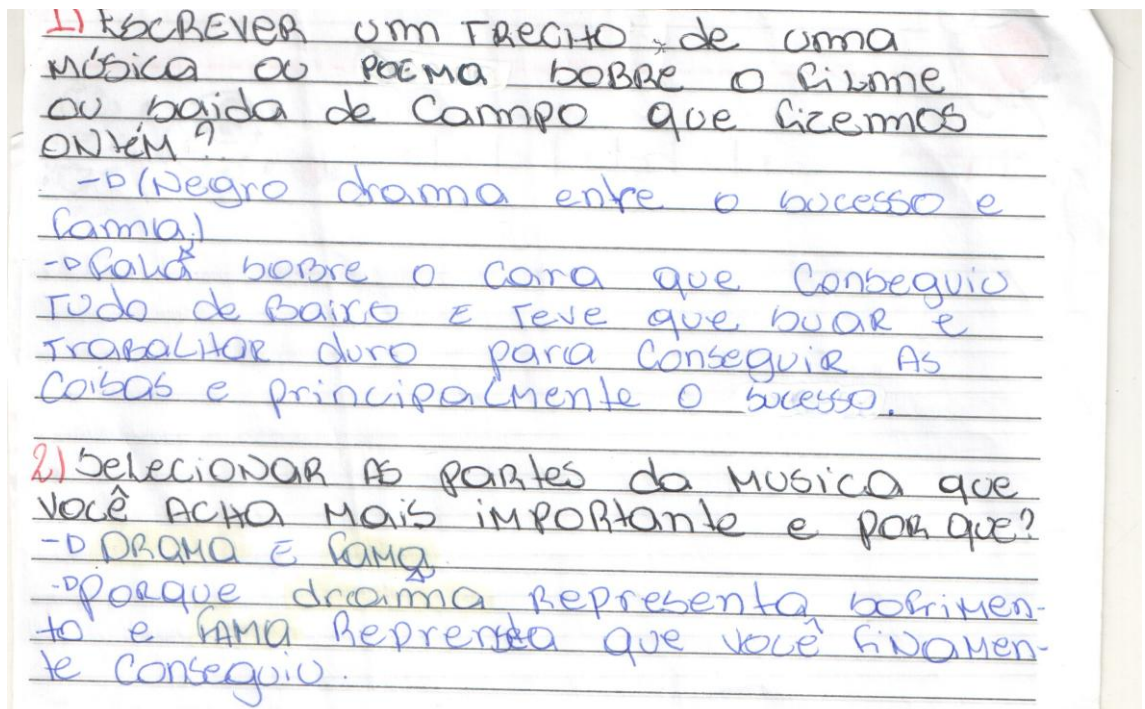 1) ESCREVER um TRECHO de uma
Música OU POEMA SOBRE O filme
ou saida de Campo que fizemos
ONTÉM?
-D(Negro drama entre o sucesso e
fama,)
-D fala sobre o cara que Conseguiu
TUDO de Baixo E Teve que SUAR e
TRABALHAR duro para Conseguir As
Coisas e principalmente o sucesso.
2) Selecionar As partes da MUSICA que
Você ACHA Mais iMPORtante e POR que?
-D DRAMA E fAMA
-D PORQUE drama Representa sofriMen-
to e fAMA Reprensea que Você fiNaMen-
te Conseguiu.